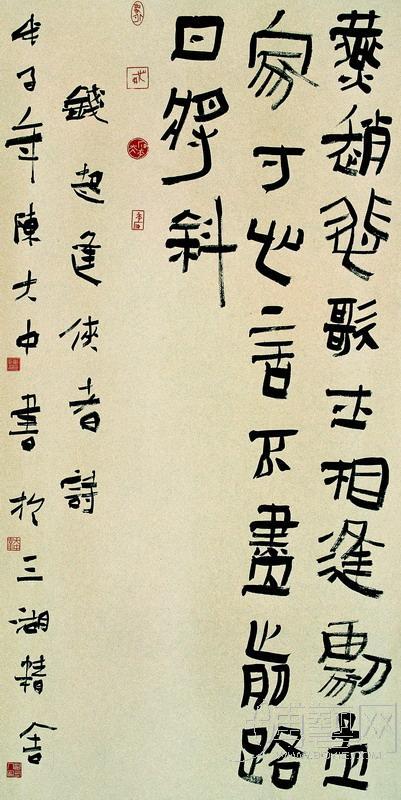 燕趙悲歌士相逢劇孟
家寸心言不盡前路
日將斜
錢起逢俠者詩
戊子年陳大中書於三湖精舍